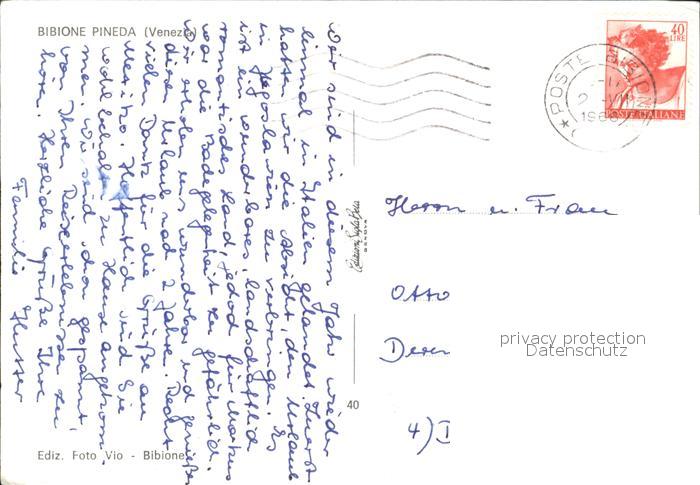 BIBIONE PINEDA (Venezia)
Wir sind in diesem Jahr wieder
einmal in Italien gelandet. Zuerst
hatten wir die Absicht, den Urlaub
in Jugoslawien zu verbringen. Es
ist ein wunderbares, landschaftlich
romantisches Land, jedoch für Markus
war die Badegelegenheit zu gefährlich.
Wir erholen uns wunderbar und genießen
diesen Urlaub nach 2 Jahren. Recht
vielen Dank für die Grüße aus
Mexiko. Hoffentlich sind Sie
wohlbehalten zu Hause angekom-
men. Wir sind schon gespannt,
von Ihren Reiseerlebnissen zu
hören. Herzliche Grüße Ihre
Familie
Ediz. Foto Vio - Bibione
GENOVA
40
40
LIRE
POSTE ITALIANE
* POSTE BIBIONE
Herrn u. Frau
Otto
4) I
privacy protection
Datenschutz